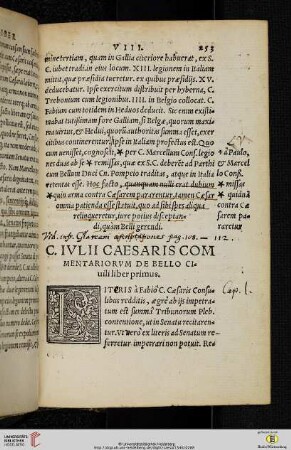 VIII. 253
mine tertiam, quam in Gallia citeriore habuerat, ex S.
C. iubet tradi. in eius locum. XIII. legionem in Italiam
mittit, quæ præsidia tueretur. ex quibus præsidijs. XV.
deducebatur. Ipse exercitum distribuit per hyberna, C.
Trebonium cum legionibus. IIII. in Belgio collocat. C.
Fabium cum totidem in Heduos deducit. Sic enim existi
mabat tutissimam fore Galliam, si Belgæ, quorum maxi
ma uirtus, & Hedui, quorum authoritas summa esset, exer
citibus continerentur. Ipse in Italiam profectus est. Quo
cum uenisset, cognoscit, * per C. Marcellum Cons. legio
nes duas ab se * remissas, quæ ex S.C. deberẽt ad Parthi
cum Bellum Duci Cn. Pompeio traditas, atque in Italia
retentas esse. Hoc facto, quanquam nulli erat dubium
* quin arma contra Cæsarem pararentur, tamen Cæsar
omnia patienda esse statuit, quo ad sibi spes aliqua
relinqueretur, iure potius disceptan-
di, quàm Belli gerendi.
* à Paulo,
& Marcel
lo Conss.
* missas
* quidnã
contra Cæ
sarem pa
raretur
pag. 108. — 112.
C. IVLII CAESARIS COM
MENTARIORVM DE BELLO CI-
uili liber primus.
Cap. 1.
LITERIS à Fabio C. Cæsaris Consu
libus redditis, ægrè ab ijs impetra-
tum est summa Tribunorum Pleb.
contentione, ut in Senatu recitaren-
tur. Vt uero ex literis ad Senatum re-
ferretur impetrari non potuit. Re-
UNIVERSITÄTS-
BIBLIOTHEK
HEIDELBERG
© Universitätsbibliothek Heidelberg